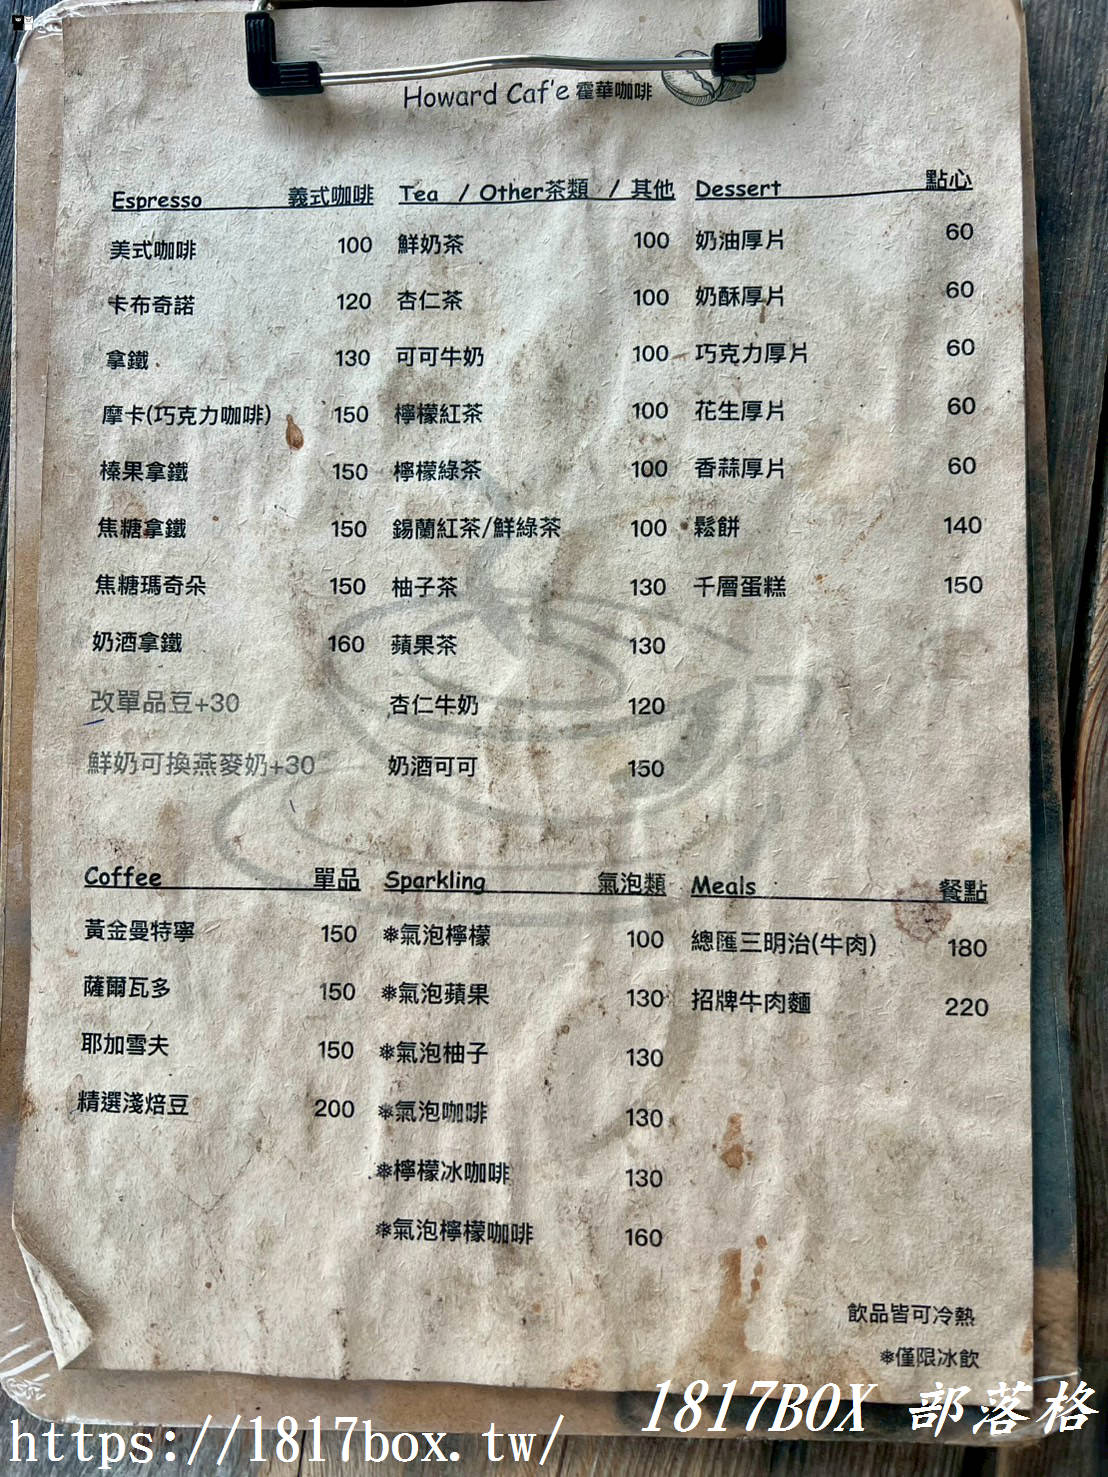 Howard Caf'e 霍華咖啡
Espresso 義式咖啡
美式咖啡 100
卡布奇諾 120
拿鐵 130
摩卡(巧克力咖啡) 150
榛果拿鐵 150
焦糖拿鐵 150
焦糖瑪奇朵 150
奶酒拿鐵 160
改單品豆+30
鮮奶可換燕麥奶+30
Tea / Other茶類 / 其他
鮮奶茶 100
杏仁茶 100
可可牛奶 100
檸檬紅茶 100
檸檬綠茶 100
錫蘭紅茶/鮮綠茶 100
柚子茶 130
蘋果茶 130
杏仁牛奶 120
奶酒可可 150
Dessert 點心
奶油厚片 60
奶酥厚片 60
巧克力厚片 60
花生厚片 60
香蒜厚片 60
鬆餅 140
千層蛋糕 150
Coffee 單品
黃金曼特寧 150
薩爾瓦多 150
耶加雪夫 150
精選淺焙豆 200
Sparkling 氣泡類
❅氣泡檸檬 100
❅氣泡蘋果 130
❅氣泡柚子 130
❅氣泡咖啡 130
❅檸檬冰咖啡 130
❅氣泡檸檬咖啡 160
Meals 餐點
總匯三明治(牛肉) 180
招牌牛肉麵 220
飲品皆可冷熱
❅僅限冰飲
1817BOX 部落格
https://1817box.tw/